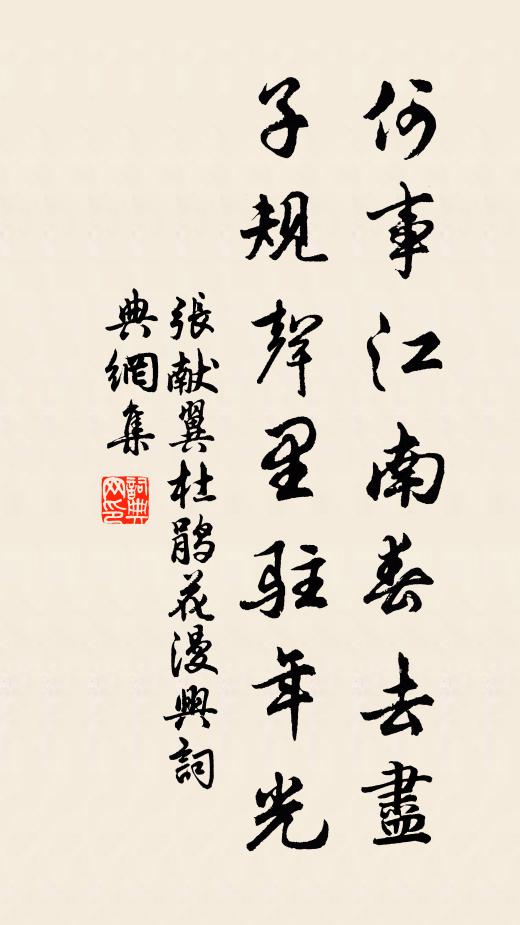 何事江南春去盡
子規聲里駐年光
張献翼杜鵑花漫興詞
典網集
詞典網印